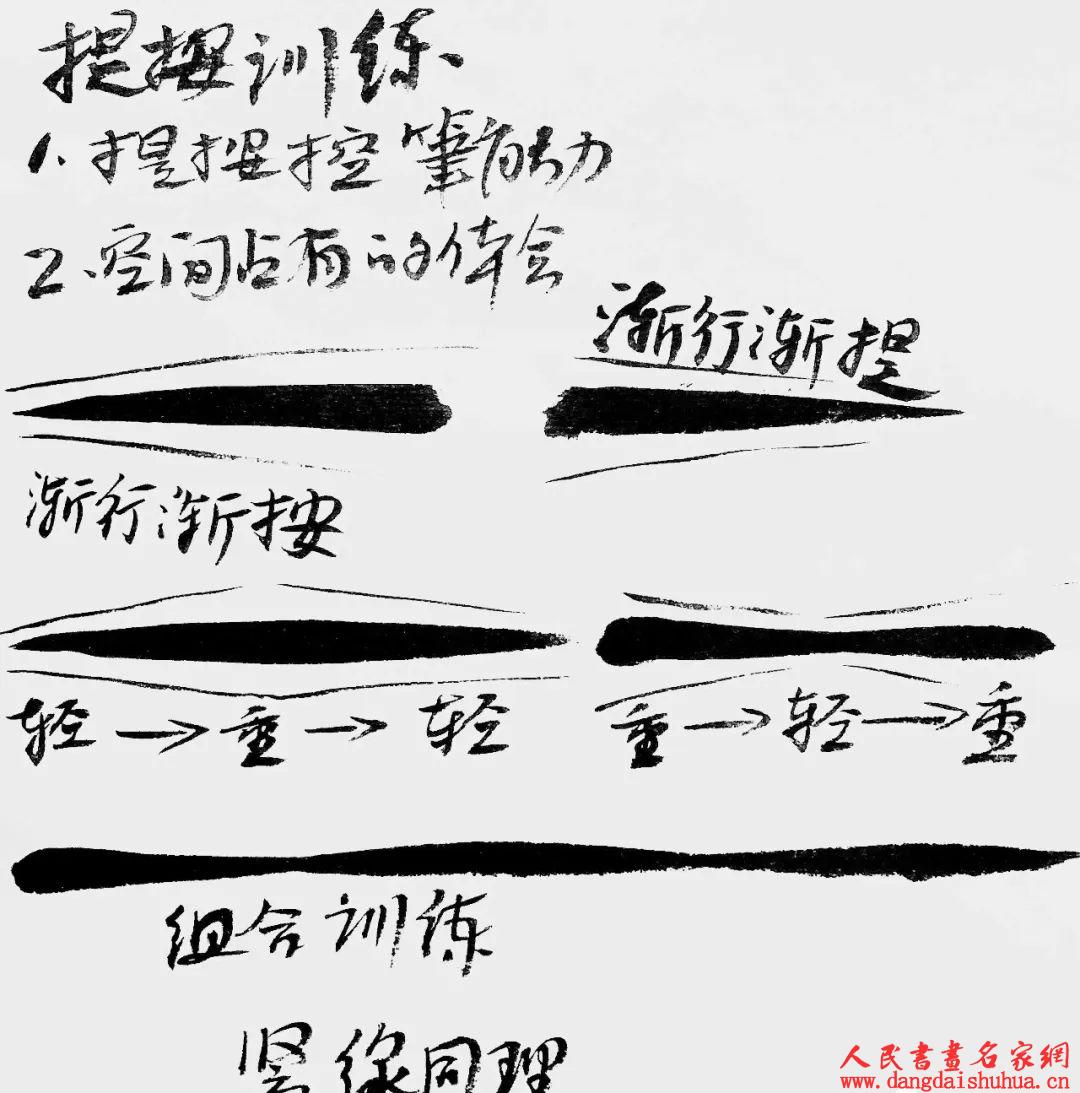 提按训练
1.提按控筆能力
2.空间占有的体会
渐行渐提
渐行渐按
轻→重→轻
重→轻→重
组合训练
竖线同理
人民書畫名家網
www.dangdaishuhua.cn